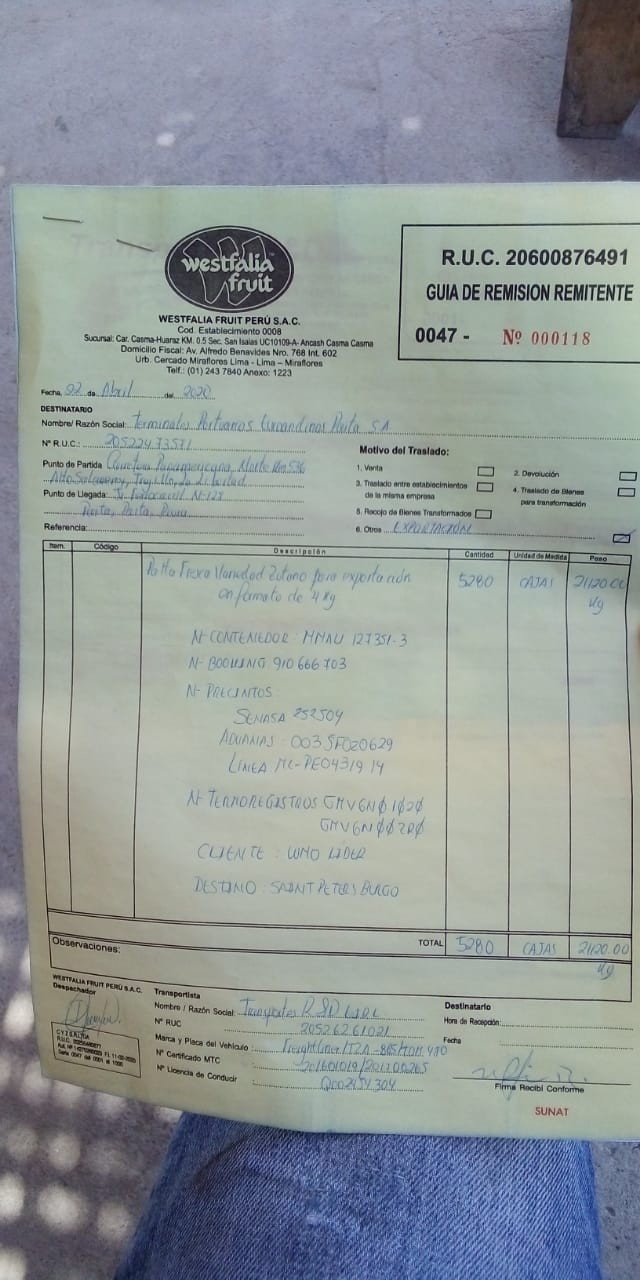 westfalia
fruit
WESTFALIA FRUIT PERÚ S.A.C.
Cod. Establecimiento 0008
Sucursal: Car. Casma-Huaraz KM. 0.5 Sec. San Isaias UC10109-A- Ancash Casma Casma
Domicilio Fiscal: Av. Alfredo Benavides Nro. 768 Int. 602
Urb. Cercado Miraflores Lima - Lima – Miraflores
Telf.: (01) 243 7840 Anexo: 1223
R.U.C. 20600876491
GUIA DE REMISION REMITENTE
0047 - Nº 000118
Fecha, 22 de Abril del 2020
DESTINATARIO
Nombre/ Razón Social: Terminales Portuarios Euroandinos Paita SA
Nº R.U.C.: 20522473571
Punto de Partida Carretera Panamericana Norte Km 536
Alto Salaverry, Trujillo, La Libertad
Punto de Llegada: Jr. Ferrocarril N-127
Paita, Paita, Piura
Referencia:
Motivo del Traslado:
1. Venta
2. Devolución
3. Traslado entre establecimientos de la misma empresa
4. Traslado de Bienes para transformación
5. Recojo de Bienes Transformados
6. Otros EXPORTACIÓN
Item. Código Descripción Cantidad Unidad de Medida Peso
Palta Fresca Variedad Zutano para exportación 5280 CAJAS 21120.00
en formato de 4 Kg Kg
N- CONTENEDOR : MMAU 127351-3
N- BOOKING 910 666 703
N- PRECINTOS
SENASA 252504
ADUANAS : 003SF020629
LINEA MC-PE0431914
N- TERMOREGISTROS GMV6N01020
GMV6N00200
CLIENTE : UMO LIDER
DESTINO : SAINT PETERSBURGO
Observaciones:
TOTAL 5280 CAJAS 21120.00
Kg
WESTFALIA FRUIT PERÚ S.A.C.
Despachador
Transportista
Nombre / Razón Social: Transportes RSD
Nº RUC 20526261021
Marca y Placa del Vehículo : Freightliner
Nº Certificado MTC
Nº Licencia de Conducir
Destinatario
Hora de Recepción:
Fecha
Firma Recibí Conforme
SUNAT